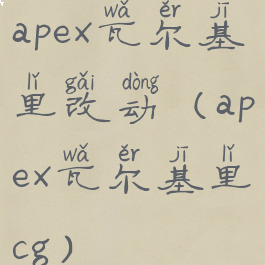 wǎ ěr jī
apex瓦尔基
lǐ gǎi dòng
里改动（ap
wǎ ěr jī lǐ
ex瓦尔基里
cg）